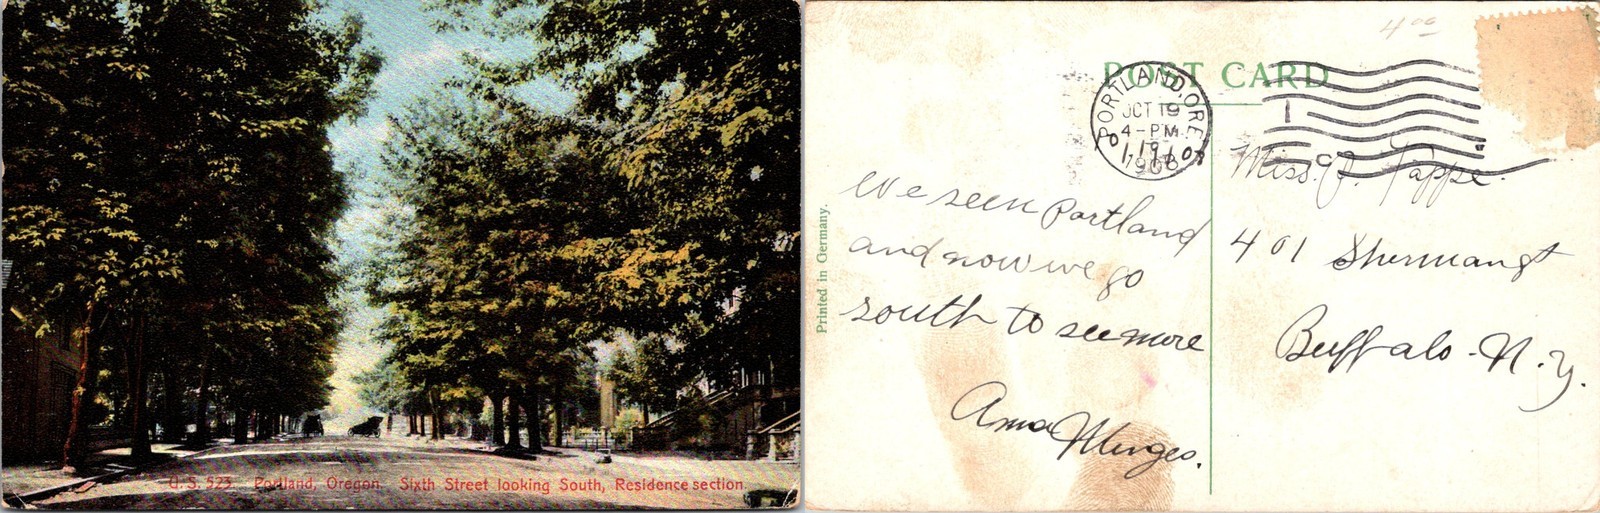 U.S. 523. Portland, Oregon. Sixth Street looking South, Residence section.
4 00
POST CARD
PORTLAND, ORE.
OCT 19
4-PM
1908
Miss. J. Pappe.
401 Sherman st
Buffalo - N.Y.
We seen Portland
and now we go
south to see more
Printed in Germany.